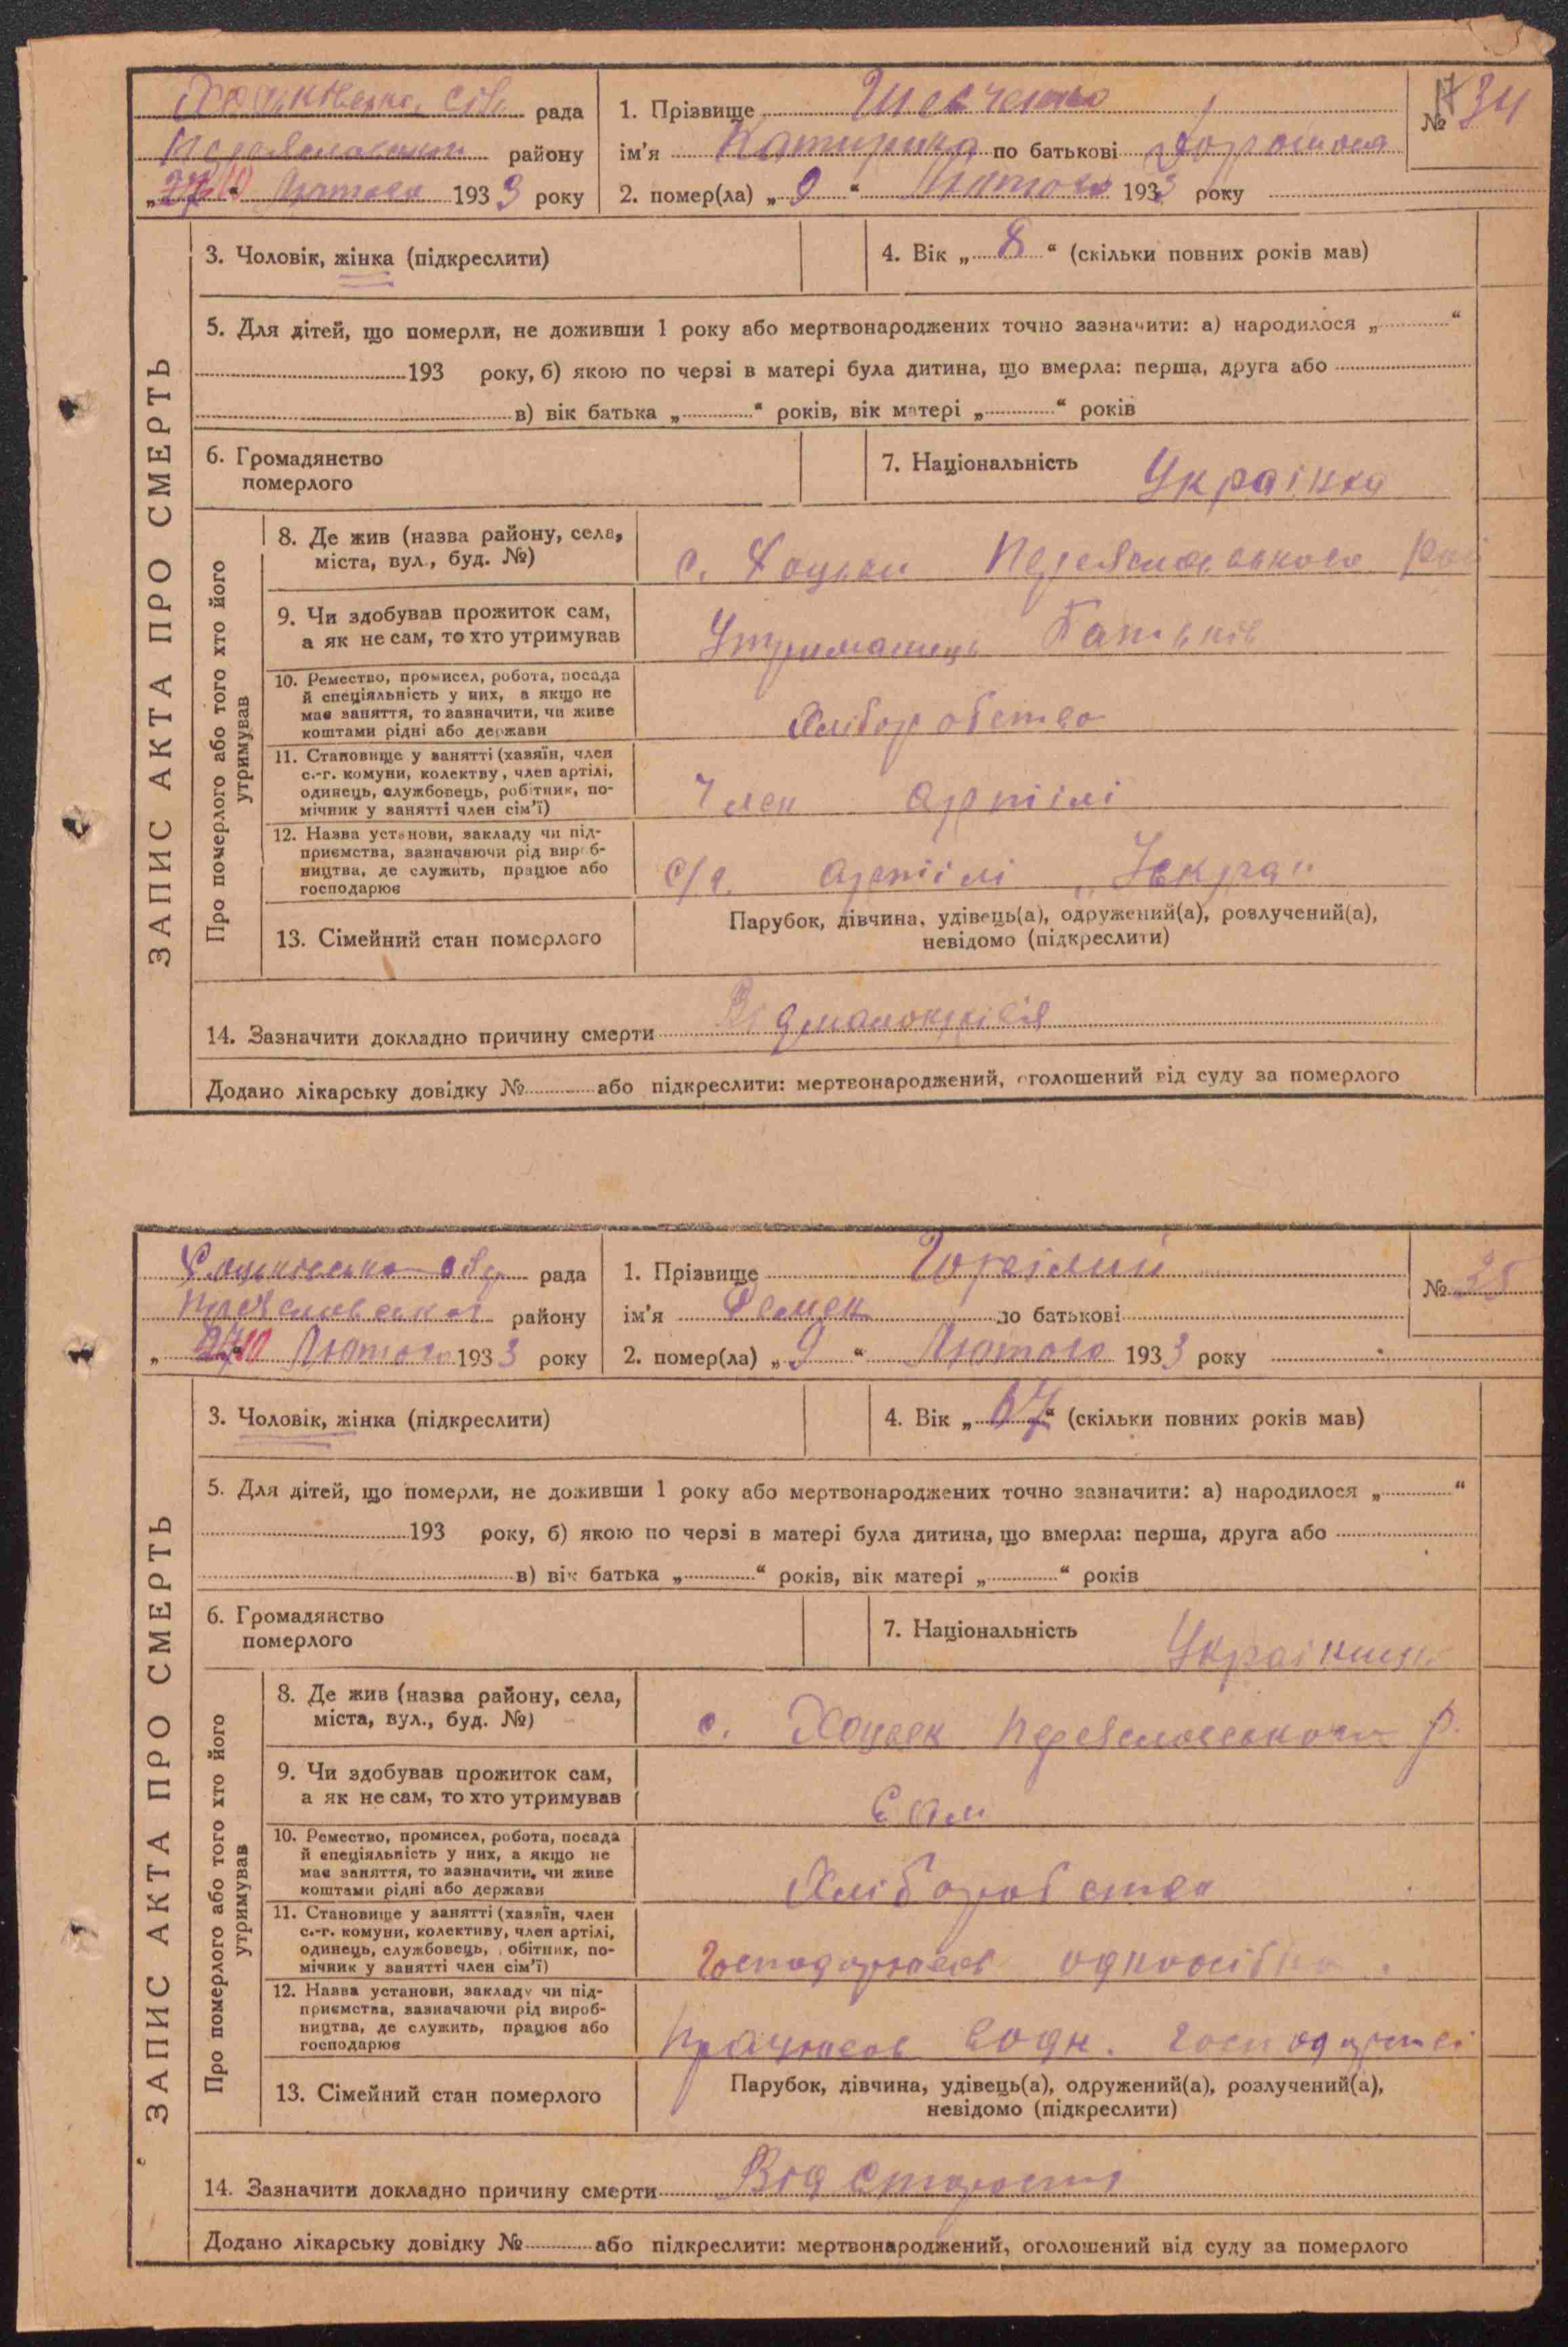 Хоцьківська сіль рада
Переяславський району
„ 10 " Лютого 1933 року
1. Прізвище Шевченко
ім'я Катирина по батькові
2. помер(ла) „ 9 " Лютого 1933 року
№ 34
3. Чоловік, жінка (підкреслити)
4. Вік „ 8 " (скільки повних років мав)
5. Для дітей, що померли, не доживши 1 року або мертвонароджених точно зазначити: а) народилося „ "
193 року, б) якою по черзі в матері була дитина, що вмерла: перша, друга або
в) вік батька „ " років, вік матері „ " років
6. Громадянство
померлого
7. Національність Українка
ЗАПИС АКТА ПРО СМЕРТЬ
Про померлого або того хто його
утримував
8. Де жив (назва району, села,
міста, вул., буд. №)
с. Хоцьки Переяславського рай
9. Чи здобував прожиток сам,
а як не сам, то хто утримував
Утриманець батьків
10. Ремество, промисел, робота, посада
й спеціяльність у них, а якщо не
має заняття, то зазначити, чи живе
коштами рідні або держави
Хліборобство
11. Становище у занятті (хазяїн, член
с.-г. комуни, колективу, член артілі,
одинець, службовець, робітник, по-
мічник у занятті член сім'ї)
Член артілі
12. Назва установи, закладу чи під-
приємства, зазначаючи рід вироб-
ництва, де служить, працює або
господарює
с/г. артілі „Іскра"
13. Сімейний стан померлого
Парубок, дівчина, удівець(а), одружений(а), розлучений(а),
невідомо (підкреслити)
14. Зазначити докладно причину смерти Від малокрівія
Додано лікарську довідку № або підкреслити: мертвонароджений, оголошений від суду за померлого
Хоцьківська сіль рада
Переяславський району
„ 10 Лютого 1933 року
1. Прізвище
ім'я Семен по батькові
2. помер(ла) „ 9 " Лютого 1933 року
№ 35
3. Чоловік, жінка (підкреслити)
4. Вік „ 67 " (скільки повних років мав)
5. Для дітей, що померли, не доживши 1 року або мертвонароджених точно зазначити: а) народилося „ "
193 року, б) якою по черзі в матері була дитина, що вмерла: перша, друга або
в) вік батька „ " років, вік матері „ " років
6. Громадянство
померлого
7. Національність Українець
ЗАПИС АКТА ПРО СМЕРТЬ
Про померлого або того хто його
утримував
8. Де жив (назва району, села,
міста, вул., буд. №)
с. Хоцьек Переяславського р.
9. Чи здобував прожиток сам,
а як не сам, то хто утримував
Сам
10. Ремество, промисел, робота, посада
й спеціяльність у них, а якщо не
має заняття, то зазначити, чи живе
коштами рідні або держави
Хліборобство
11. Становище у занятті (хазяїн, член
с.-г. комуни, колективу, член артілі,
одинець, службовець, робітник, по-
мічник у занятті член сім'ї)
Господарював одноосібно.
12. Назва установи, закладу чи під-
приємства, зазначаючи рід вироб-
ництва, де служить, працює або
господарює
працював водн. господарстві
13. Сімейний стан померлого
Парубок, дівчина, удівець(а), одружений(а), розлучений(а),
невідомо (підкреслити)
14. Зазначити докладно причину смерти Від старості
Додано лікарську довідку № або підкреслити: мертвонароджений, оголошений від суду за померлого